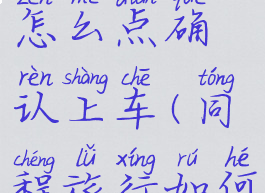 zěn me diǎn què
怎么点确
rèn shàng chē tóng
认上车(同
chéng lǚ xíng rú hé
程旅行如何